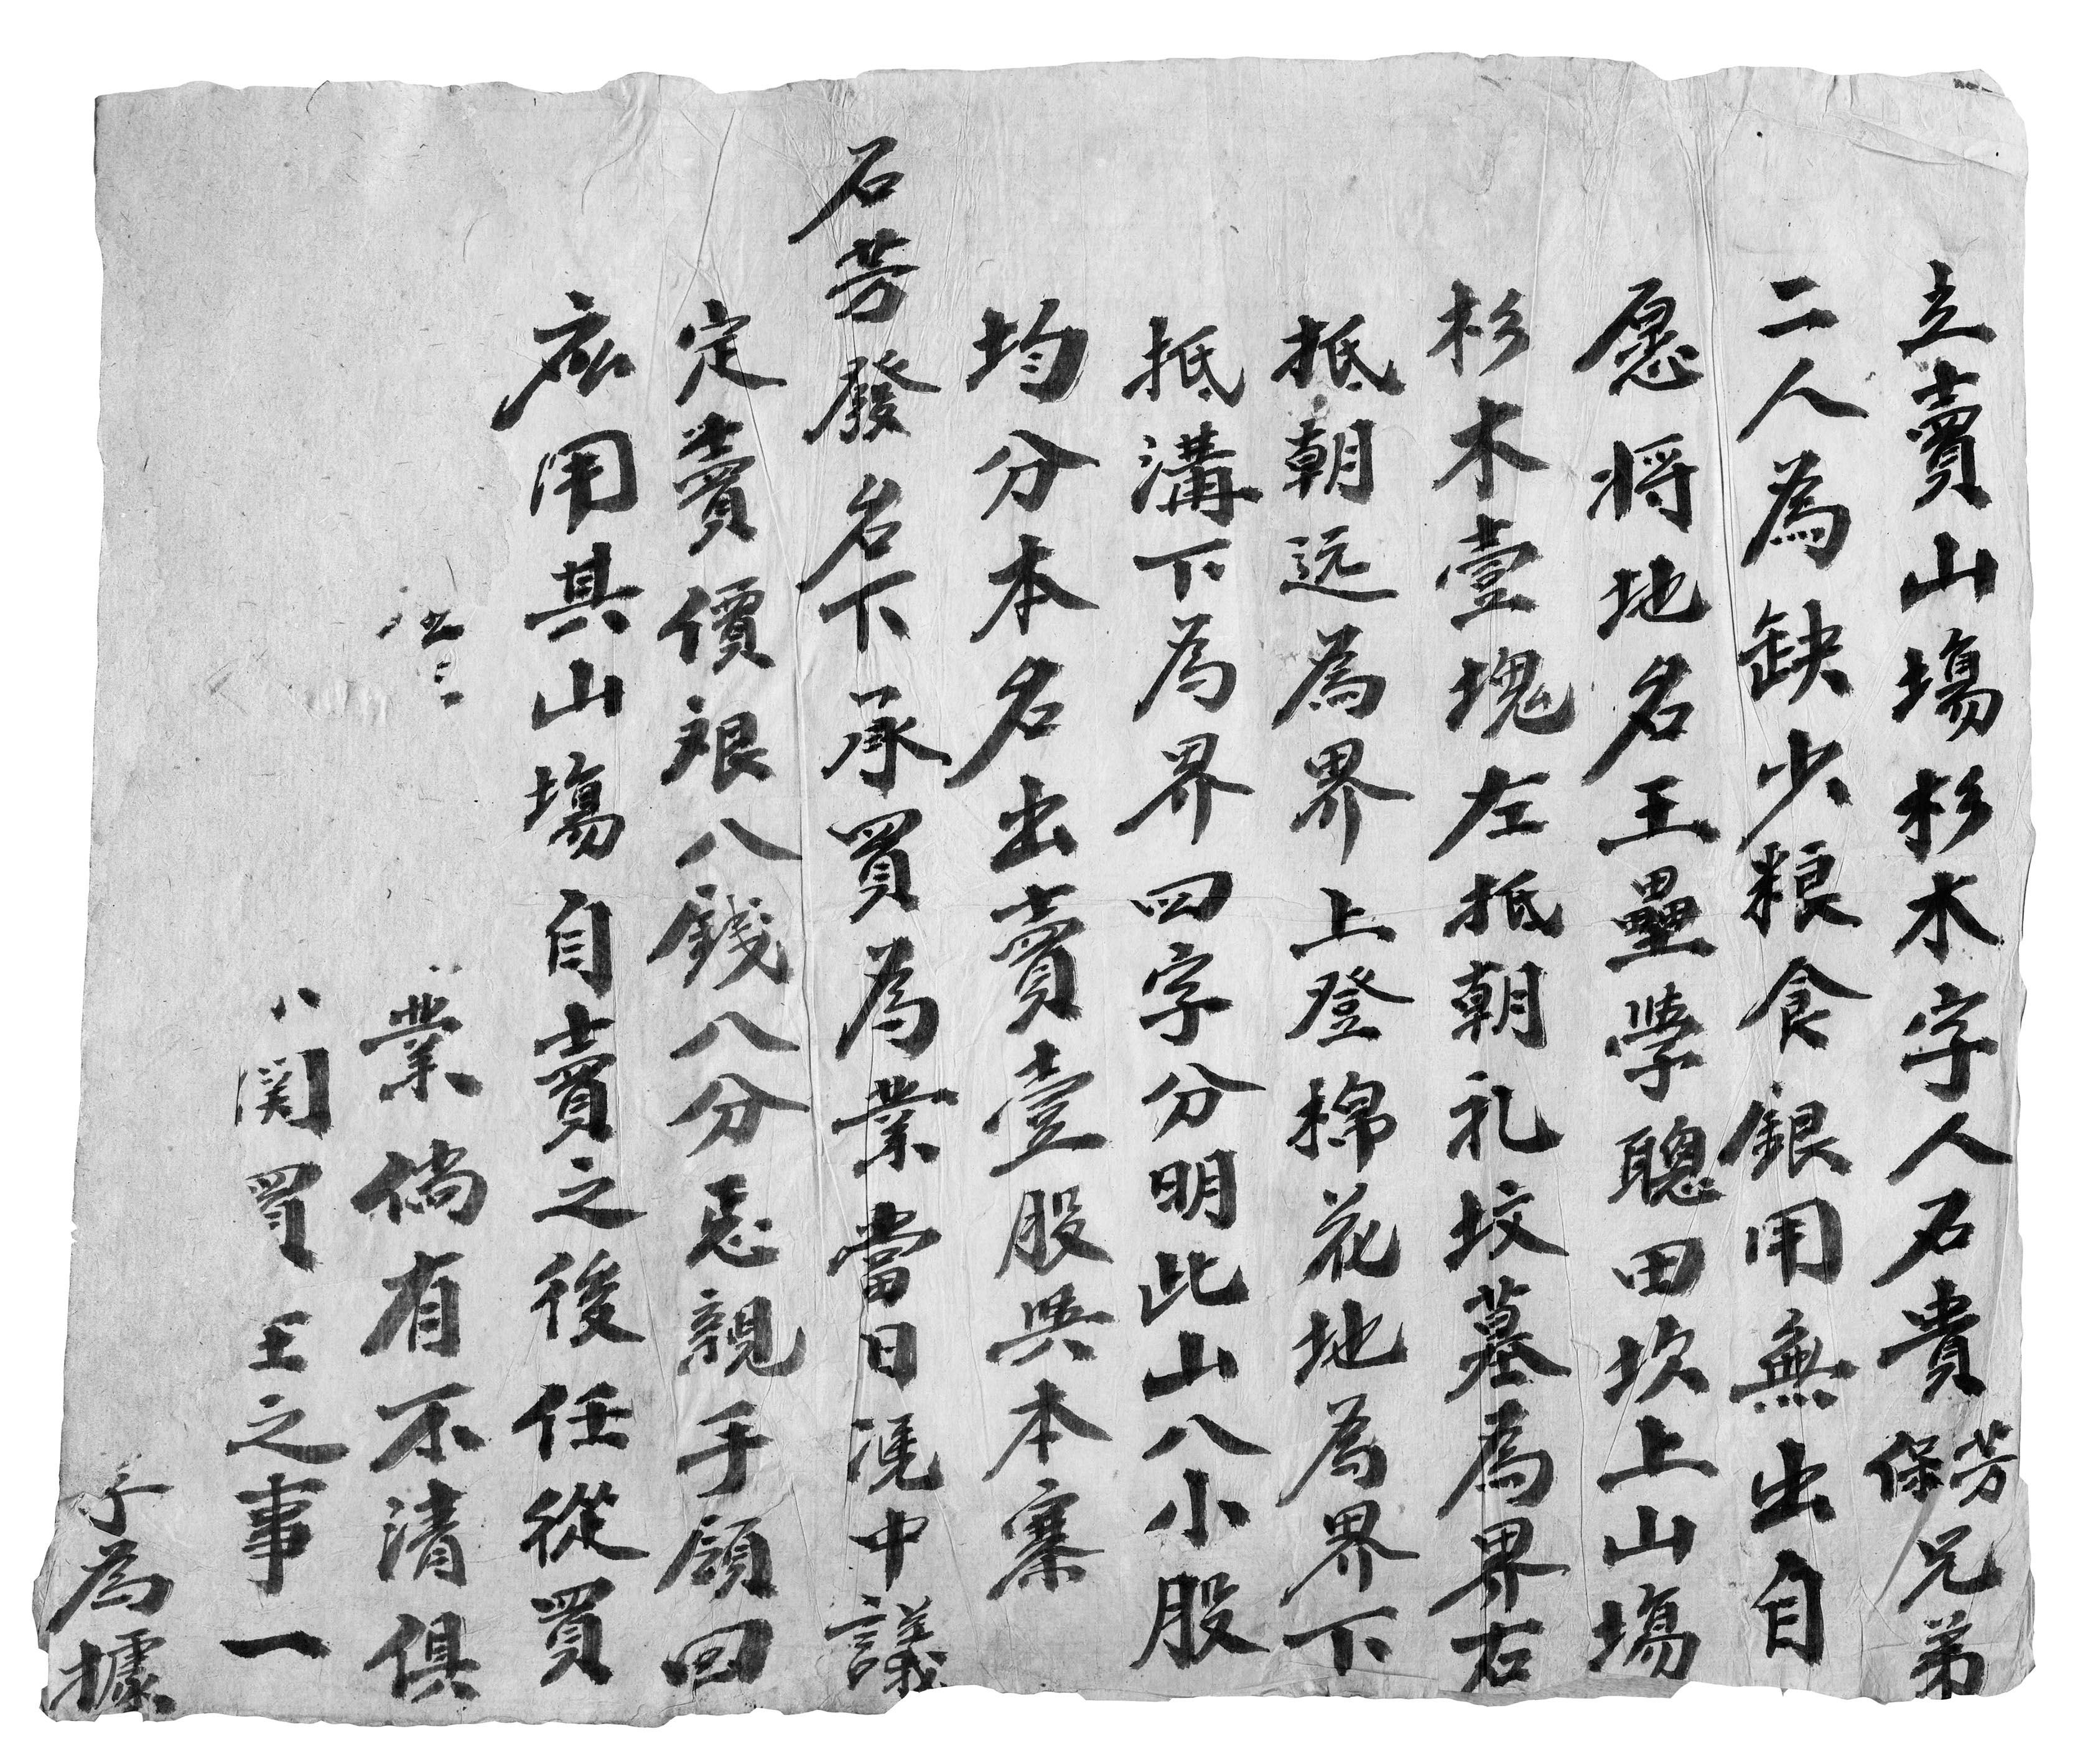 立賣山塲杉木字人石貴芳保兄弟
二人為缺少粮食銀用無出自
愿将地名王壘學聰田坎上山塲
杉木壹塊左抵朝礼坟墓為界右
抵朝远為界上登棉花地為界下
抵溝下為界四字分明此山八小股
均分本名出賣壹股與本寨
石芳發名下承買為業當日凴中議
定賣價艮八錢八分
親手領回
應用其山塲自賣之後任從買
業倘有不清俱
関買主之事一
字為據